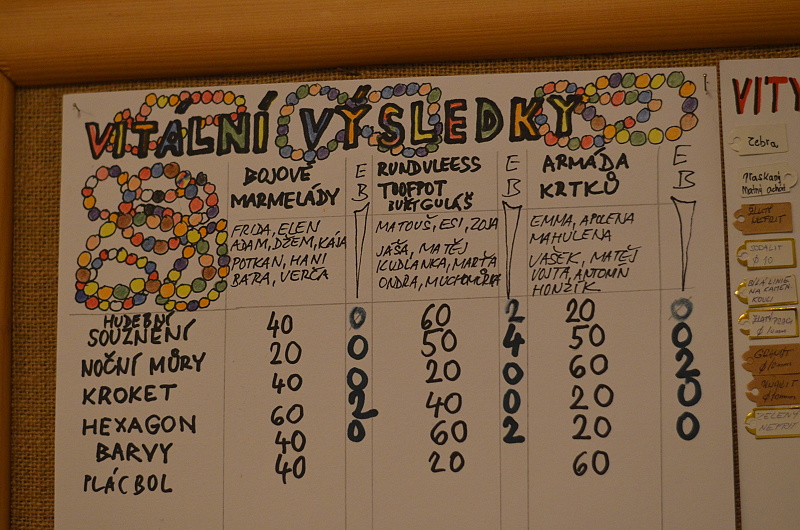 VITÁLNÍ VÝSLEDKY
BOJOVÉ
MARMELÁDY
E
B
RUNDVLEESS
TOOFPOT
BUŘTGULÁŠ
E
B
ARMÁDA
KRTKŮ
E
B
FRIDA, ELEN
ADAM, DŽEM, KÁJA
POTKAN, HANI
BÁRA, VERČA
MATOUŠ, ESI, ZOJA
JÁŠA, MATĚJ
KUDLANKA, MARŤA
ONDRA, MUCHOMŮRKA
EMMA, APOLENA
MAHULENA
VAŠEK, MATĚJ
VOJTA, ANTONÍN
HONZÍK
HUDEBNÍ
SOUZNĚNÍ 40 0 60 2 20 0
NOČNÍ MŮRY 20 0 50 4 50 0
KROKET 40 0 20 0 60 2
HEXAGON 60 2 40 0 20 0
BARVY 40 0 60 2 20 0
PLÁCBOL 40 20 60
VITY
Zebra
Maskaný
ŽLUTÝ
NEFRIT
SODALIT
Ø 10
BÍLÁ LINIE
NA KAMEN.
KOULI
GRANÁT
ZELENÝ
NEFRIT